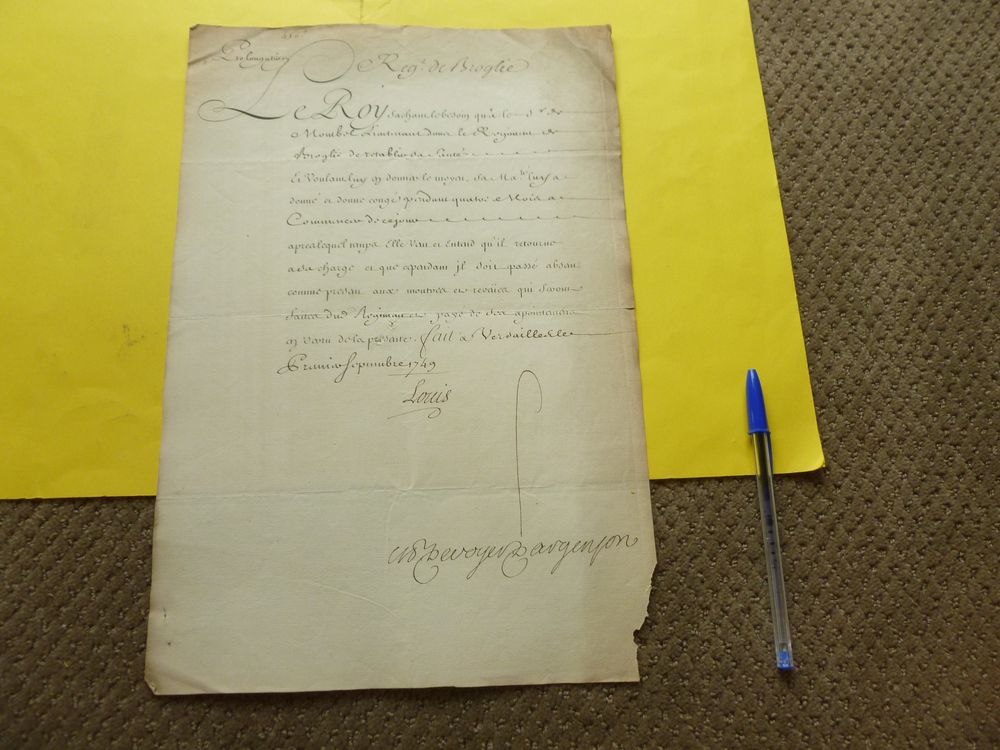 Prolongation
Reg.t de Broglie
Le Roy sachant le besoin qu'a le S.r de
Montbel Lieutenant dans le Regiment de
Broglie de retablir sa santé
Et Voulant luy en donner le moyen, Sa Ma.té luy a
donné et donne congé pendant quatre Mois a
Commencer de ce jour
apres lequel temps Elle Veut et Entend qu'il retourne
a sa charge et que cependant il soit passé absent
comme present aux montres et reveües qui seront
faites dud. Regiment et payé de ses apointemens
en vertu de la presente. fait a Versailles le
Premier Septembre 1749
Louis
M de Voyer D'argenson